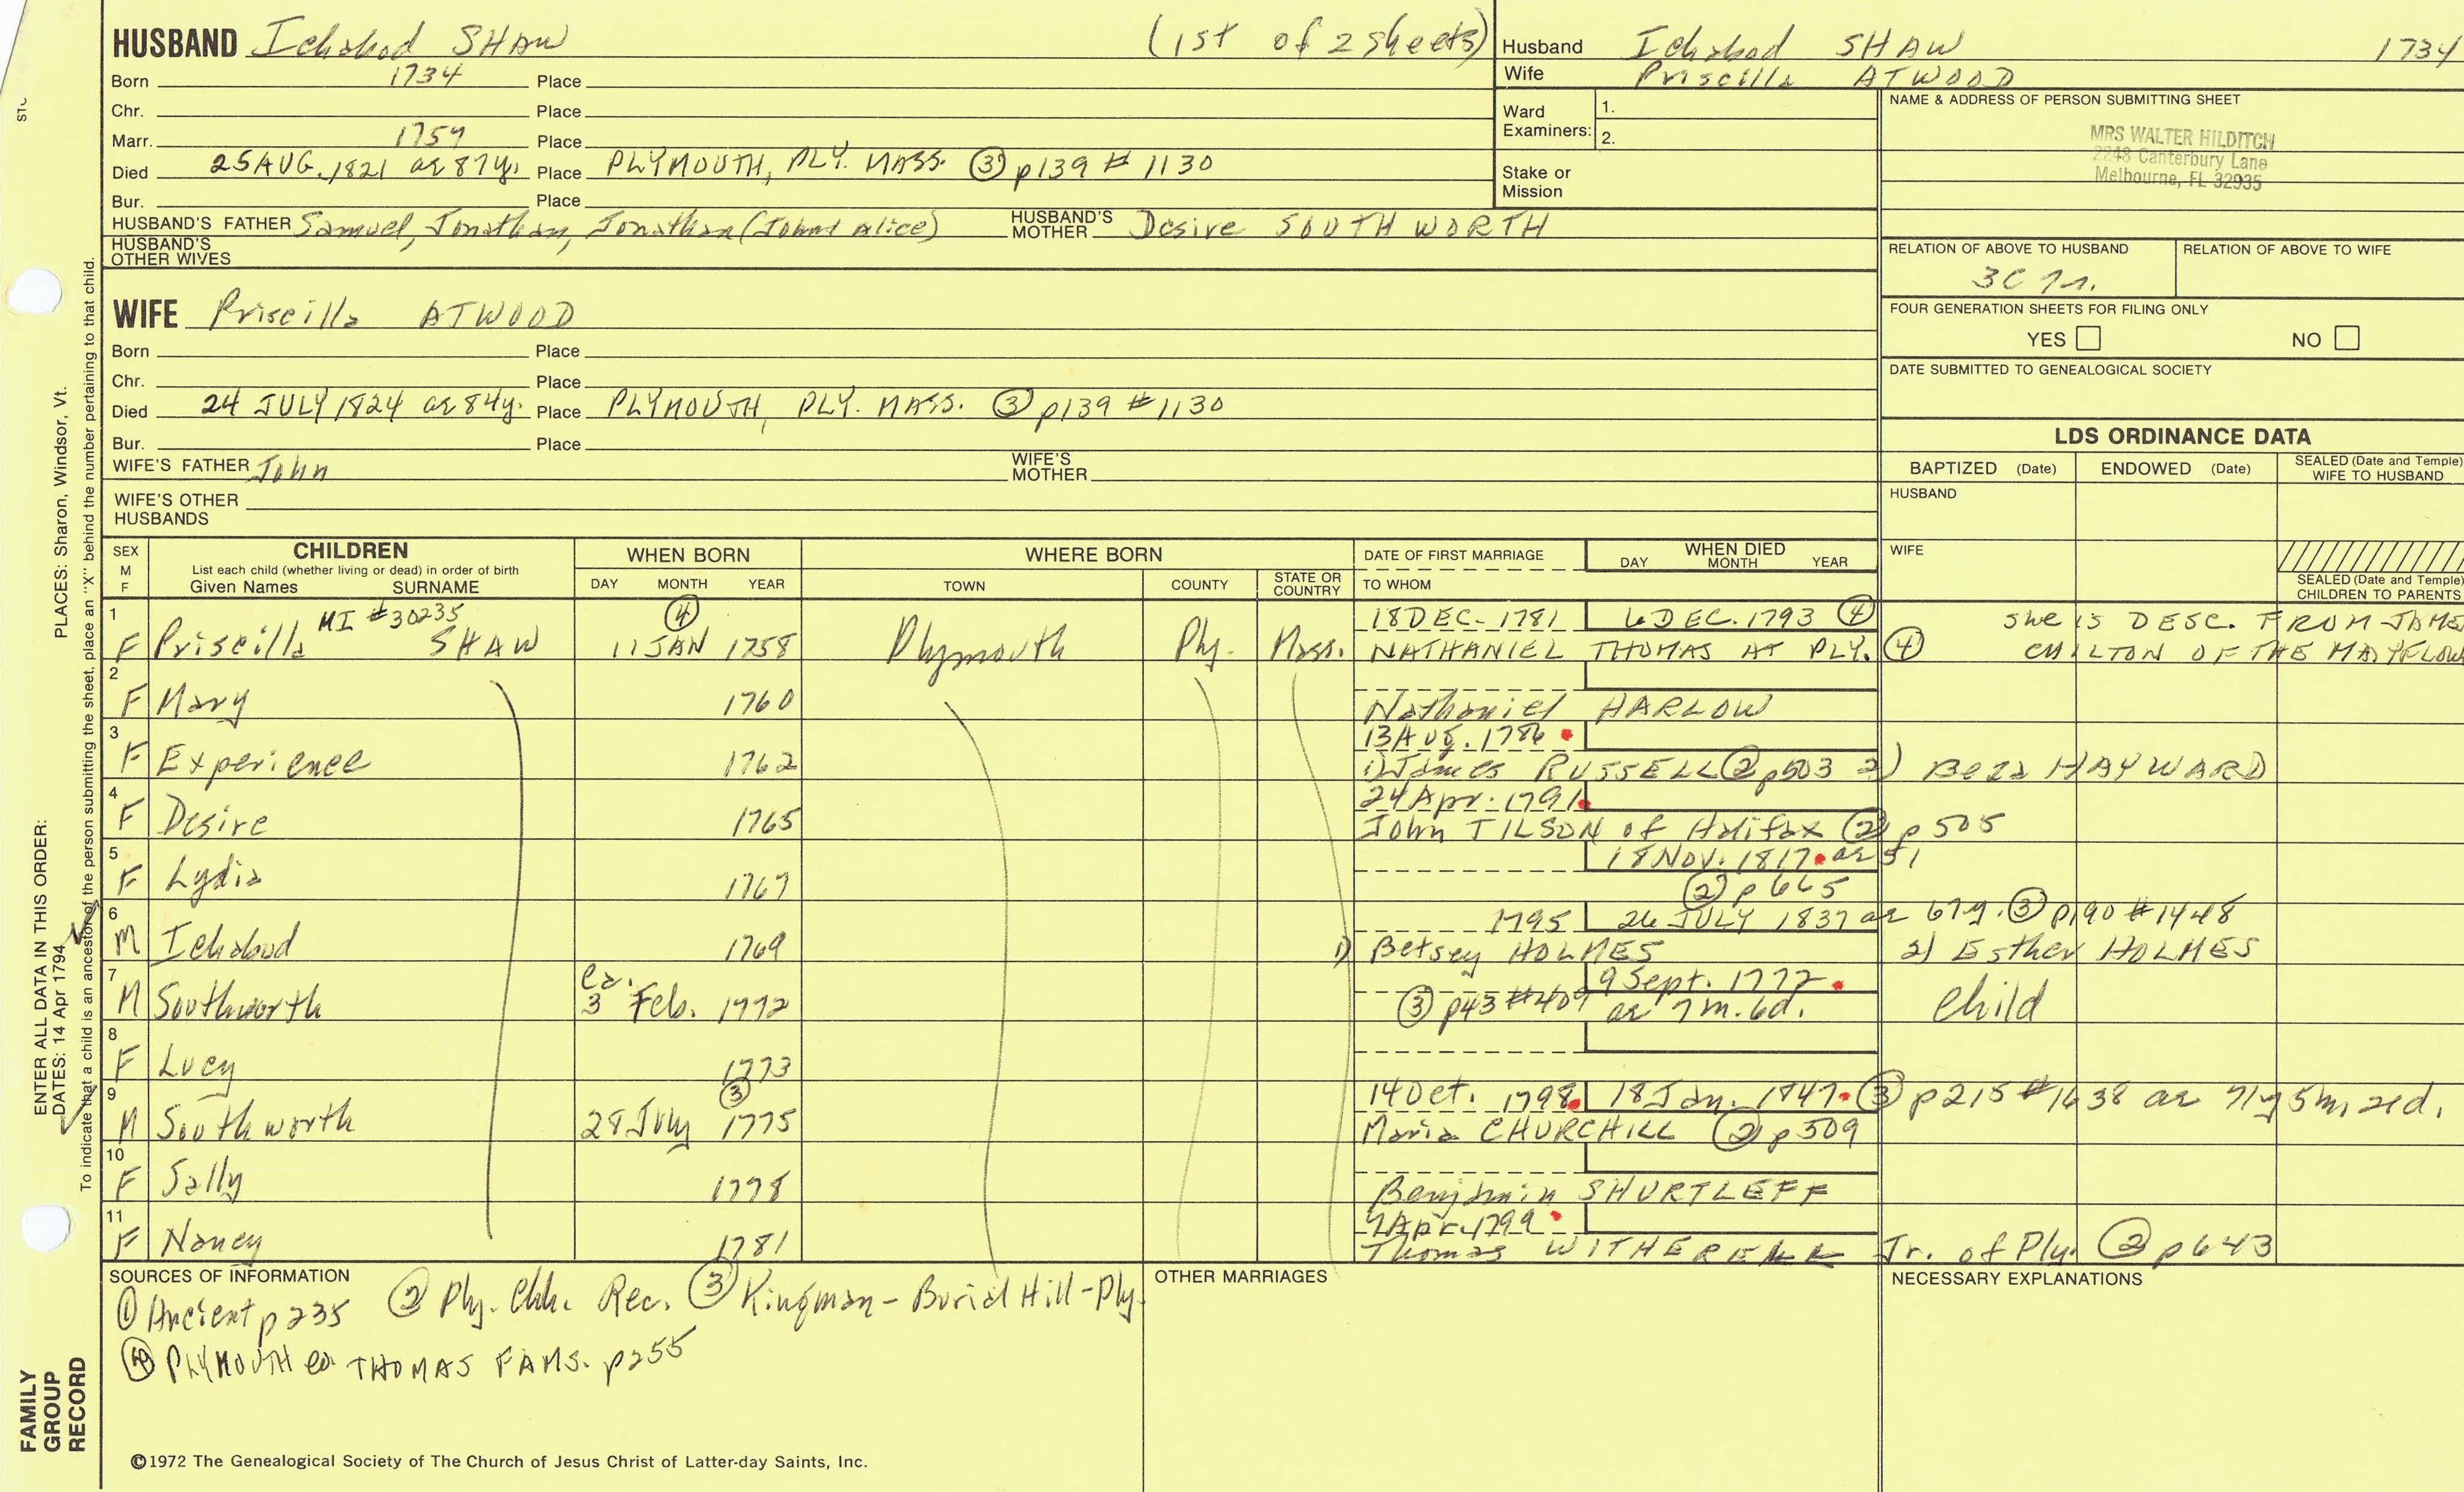 HUSBAND Ichabod SHAW (1st of 2 sheets)
Born 1734 Place
Chr. Place
Marr. 1757 Place
Died 25 AUG. 1821 ae 87y. Place PLYMOUTH, PLY. MASS. (3) p139 # 1130
Bur. Place
HUSBAND'S FATHER Samuel, Jonathan, Jonathan (John & Alice) HUSBAND'S MOTHER Desire SOUTHWORTH
HUSBAND'S OTHER WIVES
WIFE Priscilla ATWOOD
Born Place
Chr. Place
Died 24 JULY 1824 ae 84y. Place PLYMOUTH, PLY. MASS. (3) p139 #1130
Bur. Place
WIFE'S FATHER John WIFE'S MOTHER
WIFE'S OTHER HUSBANDS
Husband Ichabod SHAW 1734
Wife Priscilla ATWOOD
Ward Examiners: 1.
2.
Stake or Mission
NAME & ADDRESS OF PERSON SUBMITTING SHEET
MRS WALTER HILDITCH
2248 Canterbury Lane
Melbourne, FL 32935
RELATION OF ABOVE TO HUSBAND RELATION OF ABOVE TO WIFE
3C 7r.
FOUR GENERATION SHEETS FOR FILING ONLY
YES NO
DATE SUBMITTED TO GENEALOGICAL SOCIETY
LDS ORDINANCE DATA
BAPTIZED (Date) ENDOWED (Date) SEALED (Date and Temple) WIFE TO HUSBAND
HUSBAND
WIFE
SEALED (Date and Temple) CHILDREN TO PARENTS
SEX M F CHILDREN WHEN BORN WHERE BORN DATE OF FIRST MARRIAGE WHEN DIED
List each child (whether living or dead) in order of birth
Given Names SURNAME DAY MONTH YEAR TOWN COUNTY STATE OR COUNTRY TO WHOM DAY MONTH YEAR
1 MI #30235 (4) 18 DEC. 1781 6 DEC. 1793 (4) She IS DESC. FROM JAME
F Priscilla SHAW 11 JAN 1758 Plymouth Ply. Mass. NATHANIEL THOMAS AT PLY. (4) CHILTON OF THE MAYFLOW
2
F Mary 1760 Nathaniel HARLOW
3 13 Aug. 1786
F Experience 1762 1) James RUSSELL (2) p503 2) Beza HAYWARD
4 24 Apr. 1791
F Desire 1765 John TILSON of Halifax (2) p 505
5 18 Nov. 1817 ae 51
F Lydia 1767 (2) p 665
6 1795 26 JULY 1837 ae 67y. (3) p190 #1448
M Ichabod 1769 1) Betsey HOLMES 2) Esther HOLMES
7 ca. 9 Sept. 1772
M Southworth 3 Feb. 1772 (3) p43 #409 ae 7m. 6d. child
8
F Lucy 1773
9 (3) 14 Oct. 1798 18 Jan. 1847 (3) p215 #1638 ae 71y 5m 21d.
M Southworth 28 July 1775 Maria CHURCHILL (2) p 509
10
F Sally 1778 Benjamin SHURTLEFF
11 7 Apr. 1799
F Nancy 1781 Thomas WITHERELL Jr. of Ply. (2) p643
SOURCES OF INFORMATION OTHER MARRIAGES NECESSARY EXPLANATIONS
(1) Ancient p 235 (2) Ply. Chh. Rec. (3) Kingman - Burial Hill - Ply.
(4) PLYMOUTH co. THOMAS FAMS. p255
©1972 The Genealogical Society of The Church of Jesus Christ of Latter-day Saints, Inc.
FAMILY GROUP RECORD
ENTER ALL DATA IN THIS ORDER:
DATES: 14 Apr 1794
PLACES: Sharon, Windsor, Vt.
To indicate that a child is an ancestor of the person submitting the sheet, place an "X" behind the number pertaining to that child.